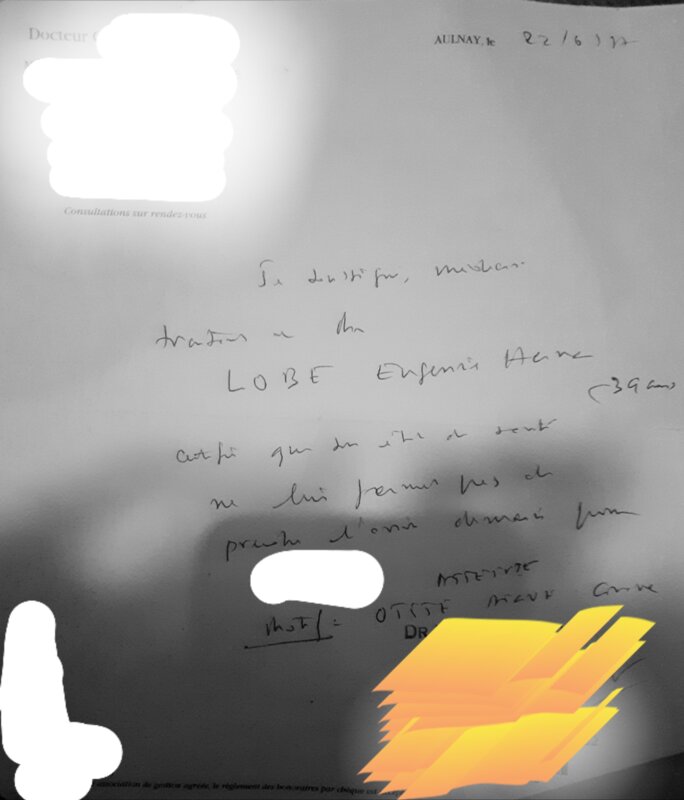 Docteur
AULNAY, le 22/6/97
Consultations sur rendez-vous
Je soussigné, médecin
traitant de
LOBE Eugenie
(39 ans
certifie que son état de santé
ne lui permet pas de
prendre l'avion dimanche pour
ATTEINTE
Motif: OTITE AIGUE
DR
association de gestion agréée, le règlement des honoraires par chèque est